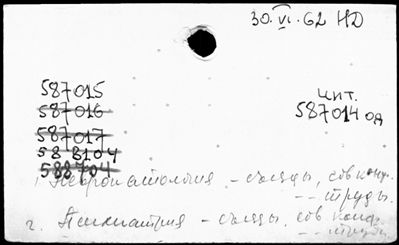 30.VI.62 НД
587015
587016
587017
588104
588704
чит.
587014 од
1. Невропатология – съезды, сов конф.
– – труды.
2. Психиатрия – съезды, сов конф.
– – труды